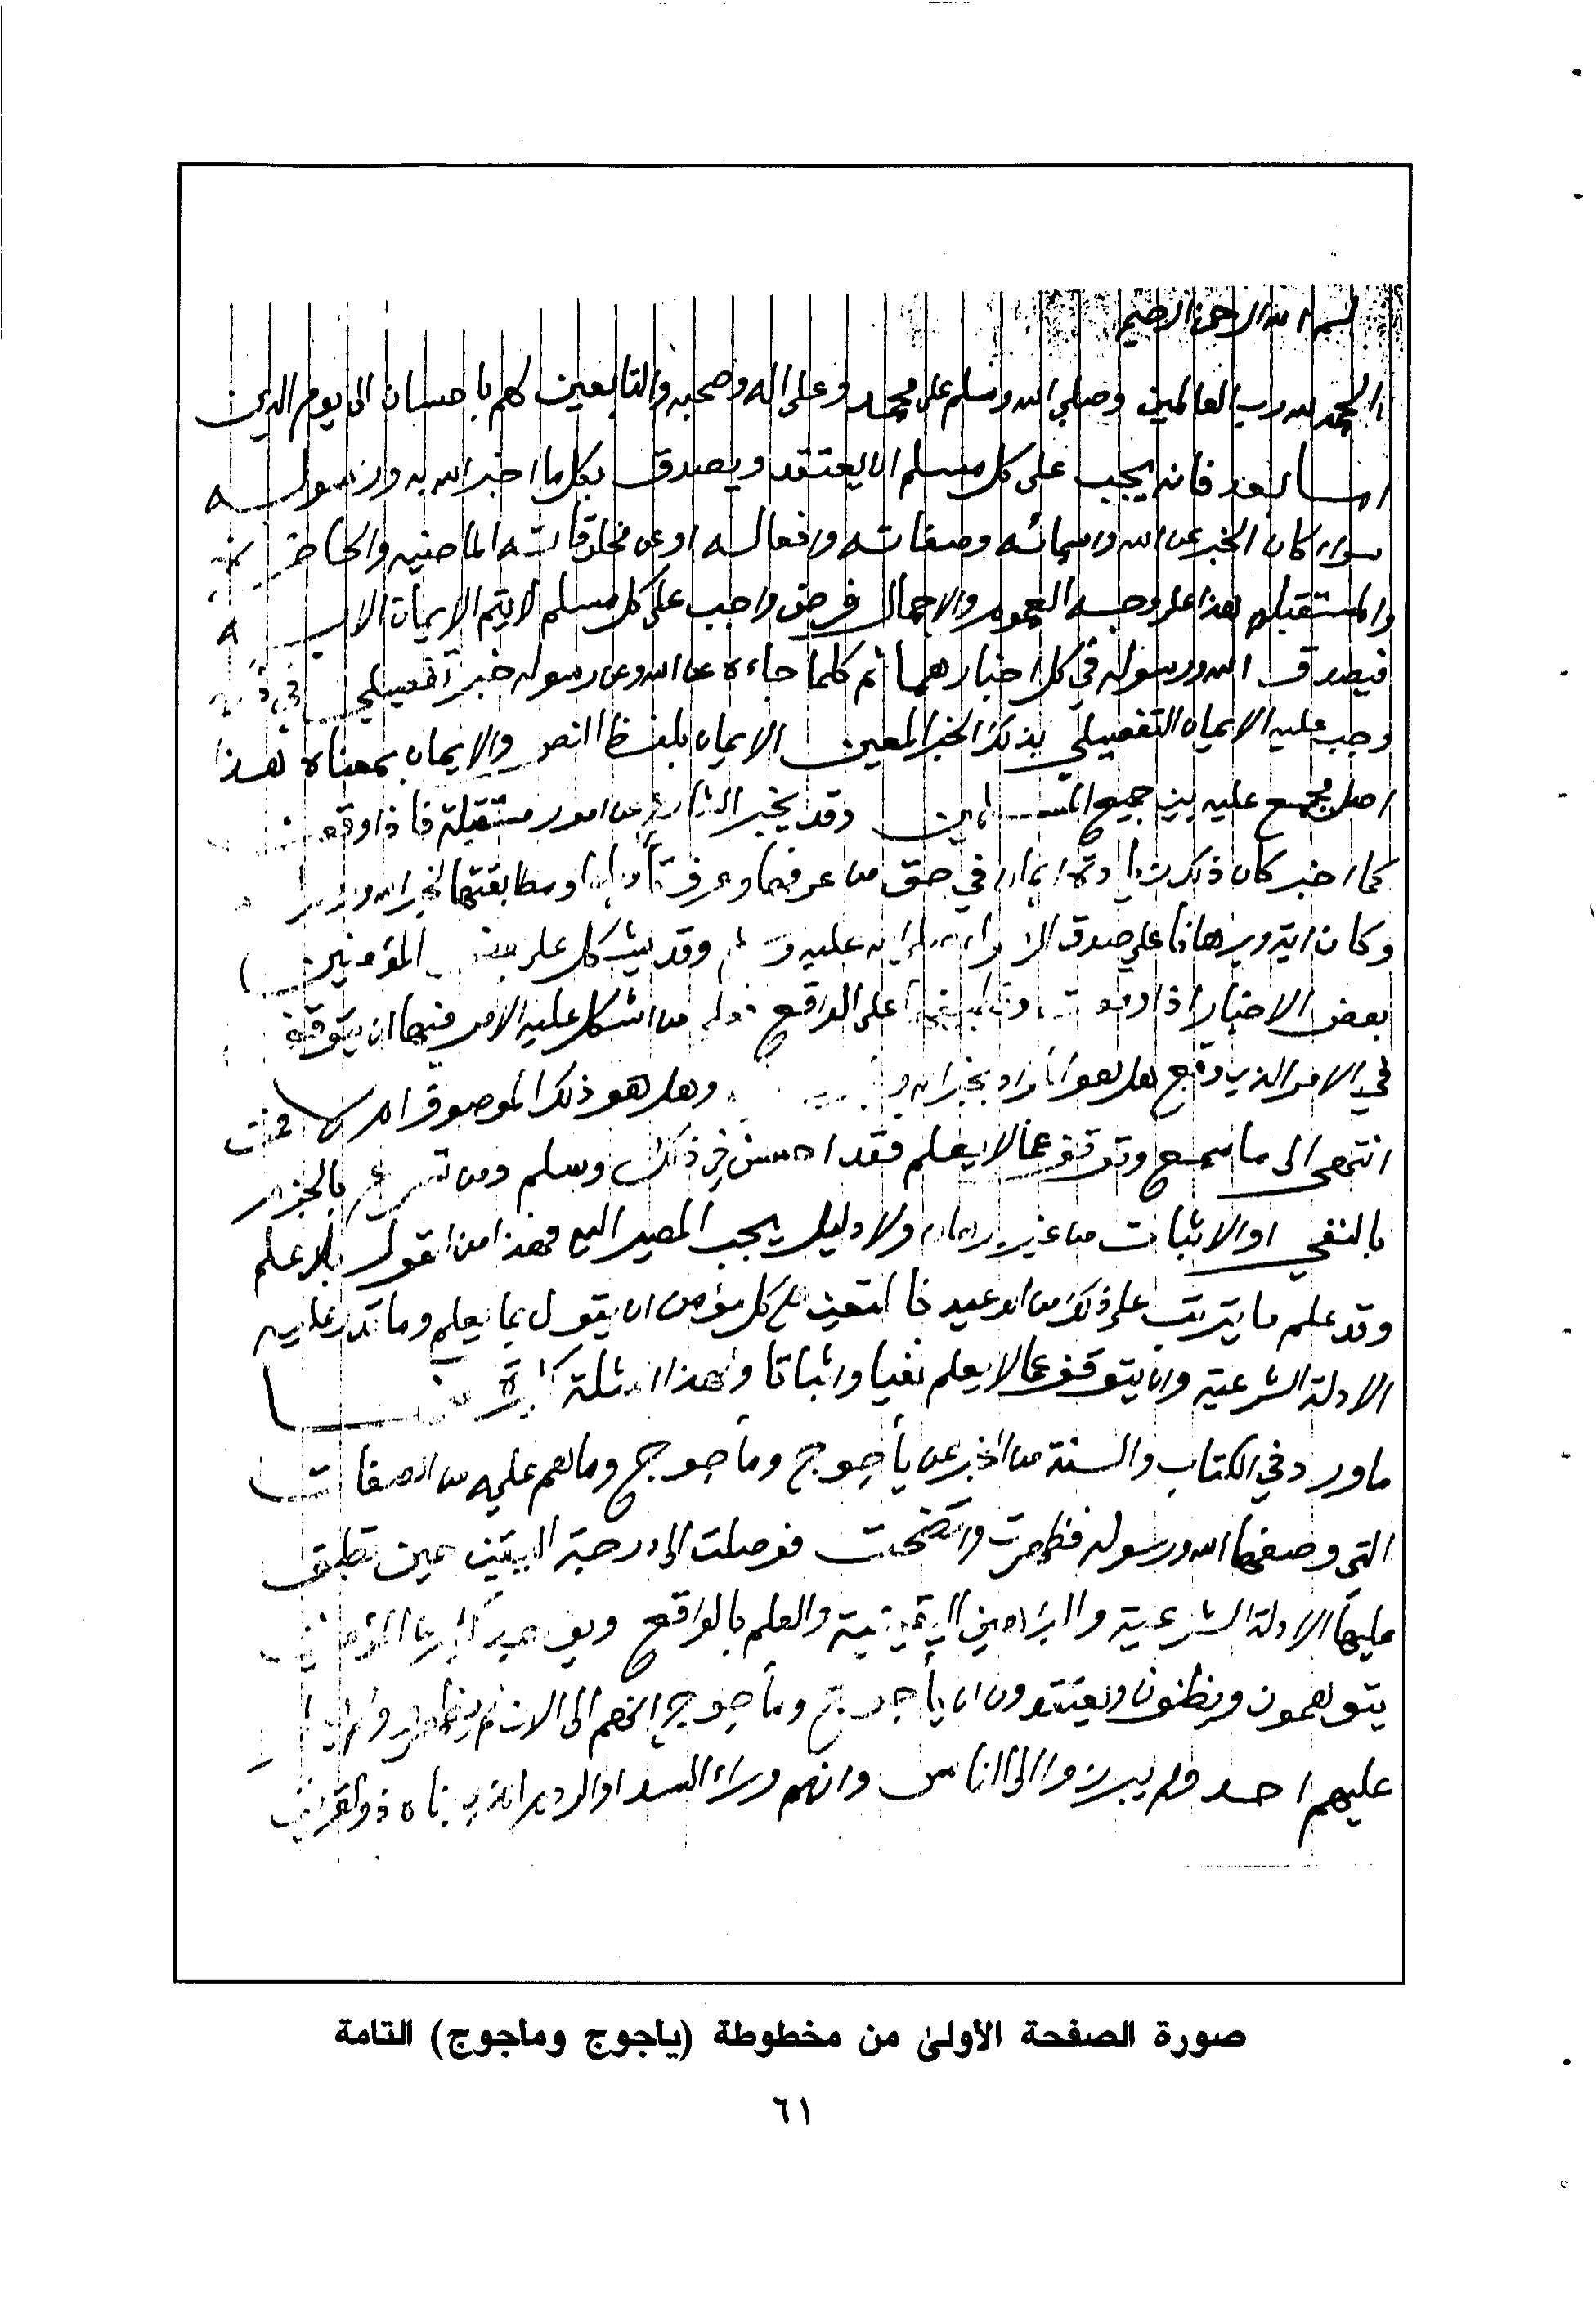 بسم الله الرحمن الرحيم
الحمد لله رب العالمين وصلى الله وسلم على محمد وعلى اله وصحبه والتابعين لهم باحسان الى يوم الدين
اما بعد فانه يجب على كل مسلم ان يعتقد ويصدق بكل ما اخبر الله به ورسوله
سواء كان الخبر عن الله واسمائه وصفاته وافعاله او عن مخلوقاته الماضيه والحاضرة
والمستقبلة وهذا على وجه العموم والاجمال فرض واجب على كل مسلم لا يتم الايمان الا به
فيصدق الله ورسوله في كل اخبارهما ثم كلما جاءه عن الله وعن رسوله خبر تفصيلي
وجب عليه الايمان التفصيلي بذلك الخبر المعين الايمان بلفظ النص والايمان بمعناه فهذا
اصل مجمع عليه بين جميع المسلمين وقد يخبر الشارع عن امور مستقبلة فاذا وقعت
كما اخبر كان ذلك زيادة ايمان في حق من عرفها وعرف تأويلها ومطابقتها لخبر الله ورسوله
وكان اية وبرهانا على صدق الرسول صلى الله عليه وسلم وقد يشكل على بعض المؤمنين
بعض الاخبار اذا وقعت وتطبيقها على الواقع فعلى من اشكل عليه الامر فيها ان يتوقف
في الامر الذي وقع هل هو المراد بخبر الله وهل هو ذلك الموصوف ام لا فمن
انتهى الى ما سمع وتوقف عما لا يعلم فقد احسن في ذلك وسلم ومن تسرع بالجزم
بالنفي او الاثبات من غير برهان ولا دليل يجب المصير اليه فهذا من القول بلا علم
وقد علم ما يترتب على ذلك من الوعيد فالمتعين على كل مؤمن ان يقول بما يعلم وما تدل عليه
الادلة الشرعية وان يتوقف عما لا يعلم نفيا واثباتا ولهذا امثلة كثيرة منها
ما ورد في الكتاب والسنة من الخبر عن يأجوج ومأجوج وما هم عليه من الصفات
التي وصفها الله ورسوله فظهرت واتضحت فوصلت الى درجة اليقين حين تطبق
عليها الادلة الشرعية والبراهين اليقينية والعلم بالواقع ويوجد كثير من المؤمنين
يتوهمون ويظنون ويعتقدون ان يأجوج ومأجوج انهم الى الان لم يظهروا ولم
عليهم احد ولم يبرزوا الى الناس وانهم وراء السد او الردم الذي بناه ذو القرنين
صورة الصفحة الأولىٰ من مخطوطة (يأجوج ومأجوج) التامة
٦١